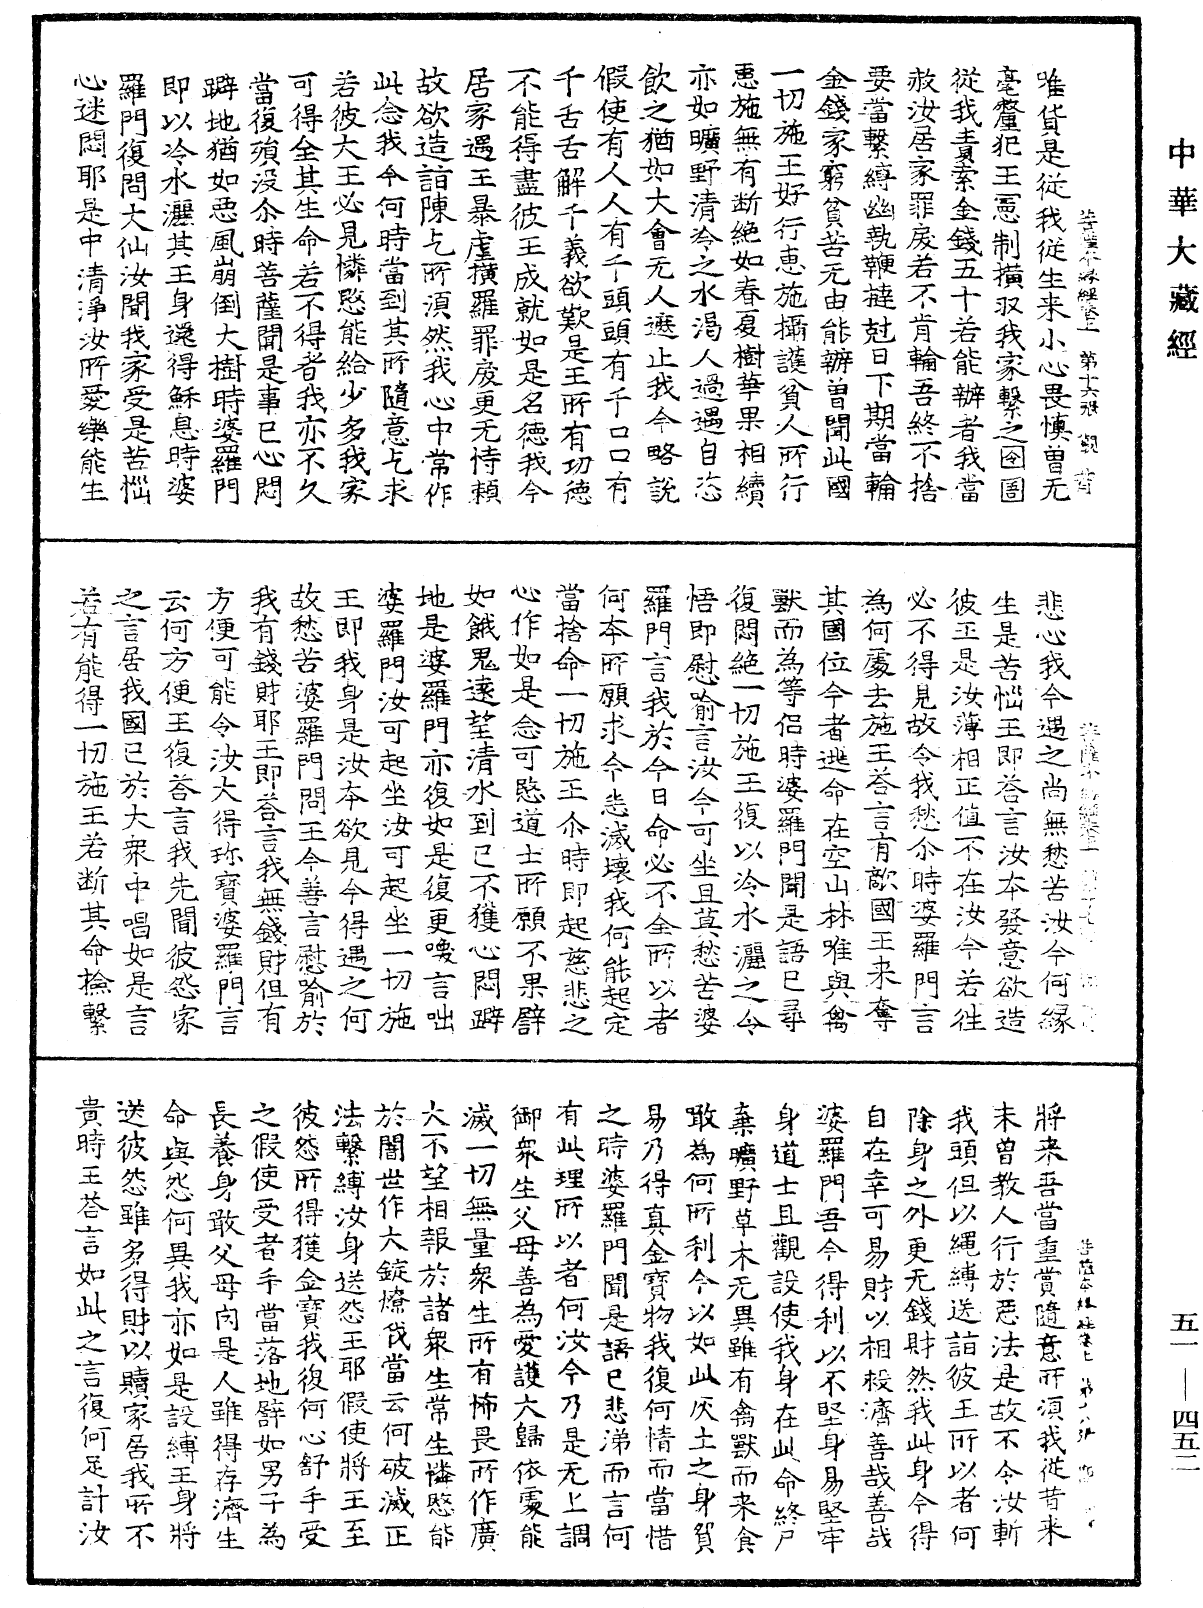 中華大藏經
唯貨是從我從生来小心畏慎曽无
毫釐犯王憲制橫収我家繫之囹圄
從我責索金錢五十若能辦者我當
赦汝居家罪戾若不肯輸吾終不捨
要當繫縛幽執鞭撻尅日下期當輪
金錢家窮貧苦无由能辦曽聞此國
一切施王好行恵施攝護貧人所行
恵施無有断絶如春夏樹華果相續
亦如曠野清冷之水渴人過遇自恣
飲之猶如大會无人遮止我今略說
假使有人人有千頭頭有千口口有
千舌舌解千義欲歎是王所有功徳
不能得盡彼王成就如是名徳我今
居家遇王暴虐橫羅罪戾更无恃頼
故欲造詣陳乞所湏然我心中常作
此念我今何時當到其所隨意乞求
若彼大王必見憐愍能給少多我家
可得全其生命若不得者我亦不久
當復殞没尒時菩薩聞是事已心悶
躃地猶如惡風崩倒大樹時婆羅門
即以冷水灑其王身還得穌息時婆
羅門復問大仙汝聞我家受是苦惱
心迷悶耶是中清淨汝所愛樂能生
悲心我今遇之尚無愁苦汝今何縁
生是苦惱王即荅言汝本發意欲造
彼王是汝薄相正值不在汝今若往
必不得見故令我愁尒時婆羅門言
為何處去施王荅言有敵國王来奪
其國位今者逃命在空山林唯與禽
獸而為等侣時婆羅門聞是語已尋
復悶絶一切施王復以冷水灑之令
悟即慰喻言汝今可坐且莫愁苦婆
羅門言我於今日命必不全所以者
何本所願求今悉滅壞我何能起定
當捨命一切施王尒時即起慈悲之
心作如是念可愍道士所願不果譬
如餓鬼遠望清水到已不獲心悶躃
地是婆羅門亦復如是復更喚言咄
婆羅門汝可起坐汝可起坐一切施
王即我身是汝本欲見今得遇之何
故愁苦婆羅門問王今善言慰喻於
我有錢財耶王即荅言我無錢財但有
方便可能令汝大得珎寶婆羅門言
云何方便王復荅言我先聞彼怨家
之言居我國已於大衆中唱如是言
若有能得一切施王若断其命撿繫
將来吾當重賞隨意所湏我從昔来
未曽教人行於惡法是故不令汝斬
我頭但以繩縛送詣彼王所以者何
除身之外更无錢財然我此身今得
自在幸可易財以相救濟善哉善哉
婆羅門吾今得利以不堅身易堅牢
身道士且觀設使我身在此命終尸
棄曠野草木无異雖有禽獸而来食
噉為何所利今以如此灰土之身貿
易乃得真金寶物我復何情而當惜
之時婆羅門聞是語已悲涕而言何
有此理所以者何汝今乃是无上調
御衆生父母善為愛護大歸依處能
滅一切無量衆生所有怖畏所作廣
大不望相報於諸衆生常生憐愍能
於闇世作大錠燎伐當云何破滅正
法繫縛汝身送怨王耶假使將王至
彼怨所得獲金寶我復何心舒手受
之假使受者手當落地譬如男子為
長養身敢父母肉是人雖得存濟生
命與怨何異我亦如是設縛王身將
送彼怨雖多得財以贖家居我所不
貴時王荅言如此之言復何足計汝
五一—四五二